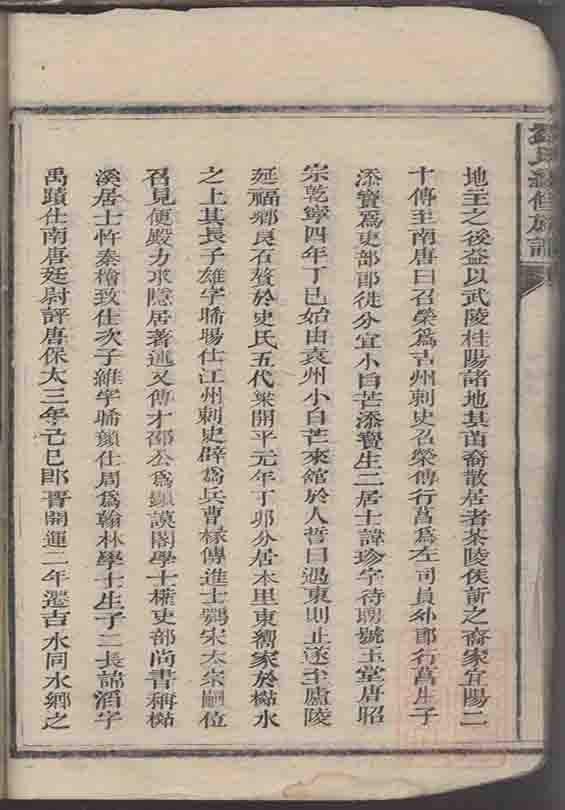 地主之後益以武陵桂陽諸地其苗裔散居者茶陵侯訢之裔家宜陽二
十傳至南唐曰召榮爲吉州刺史召榮傳行萬爲左司員外郎行萬生子
添寶爲吏部郎徙分宜小白芒添寶生二居士諱珍字待聘號玉堂唐昭
宗乾寧四年丁巳始由袁州小白芒來館於人誓曰遇東則止遂至廬陵
延福鄉良石贅於史氏五代梁開平元年丁卯分居本里東嚮家於㴖水
之上其長子雄字晞暘仕江州刺史辟爲兵曹椽傳進士鶚宋太宗嗣位
召見便殿力求隱居著述又傳才邵公爲顯謨閣學士權吏部尚書稱
溪居士忤秦檜致仕次子維字晞顏仕周爲翰林學士生子二長端滔字
禹蹟仕南唐廷尉評唐保大三年乙巳即晉開運二年遷吉水同水鄉之
氏 修族譜